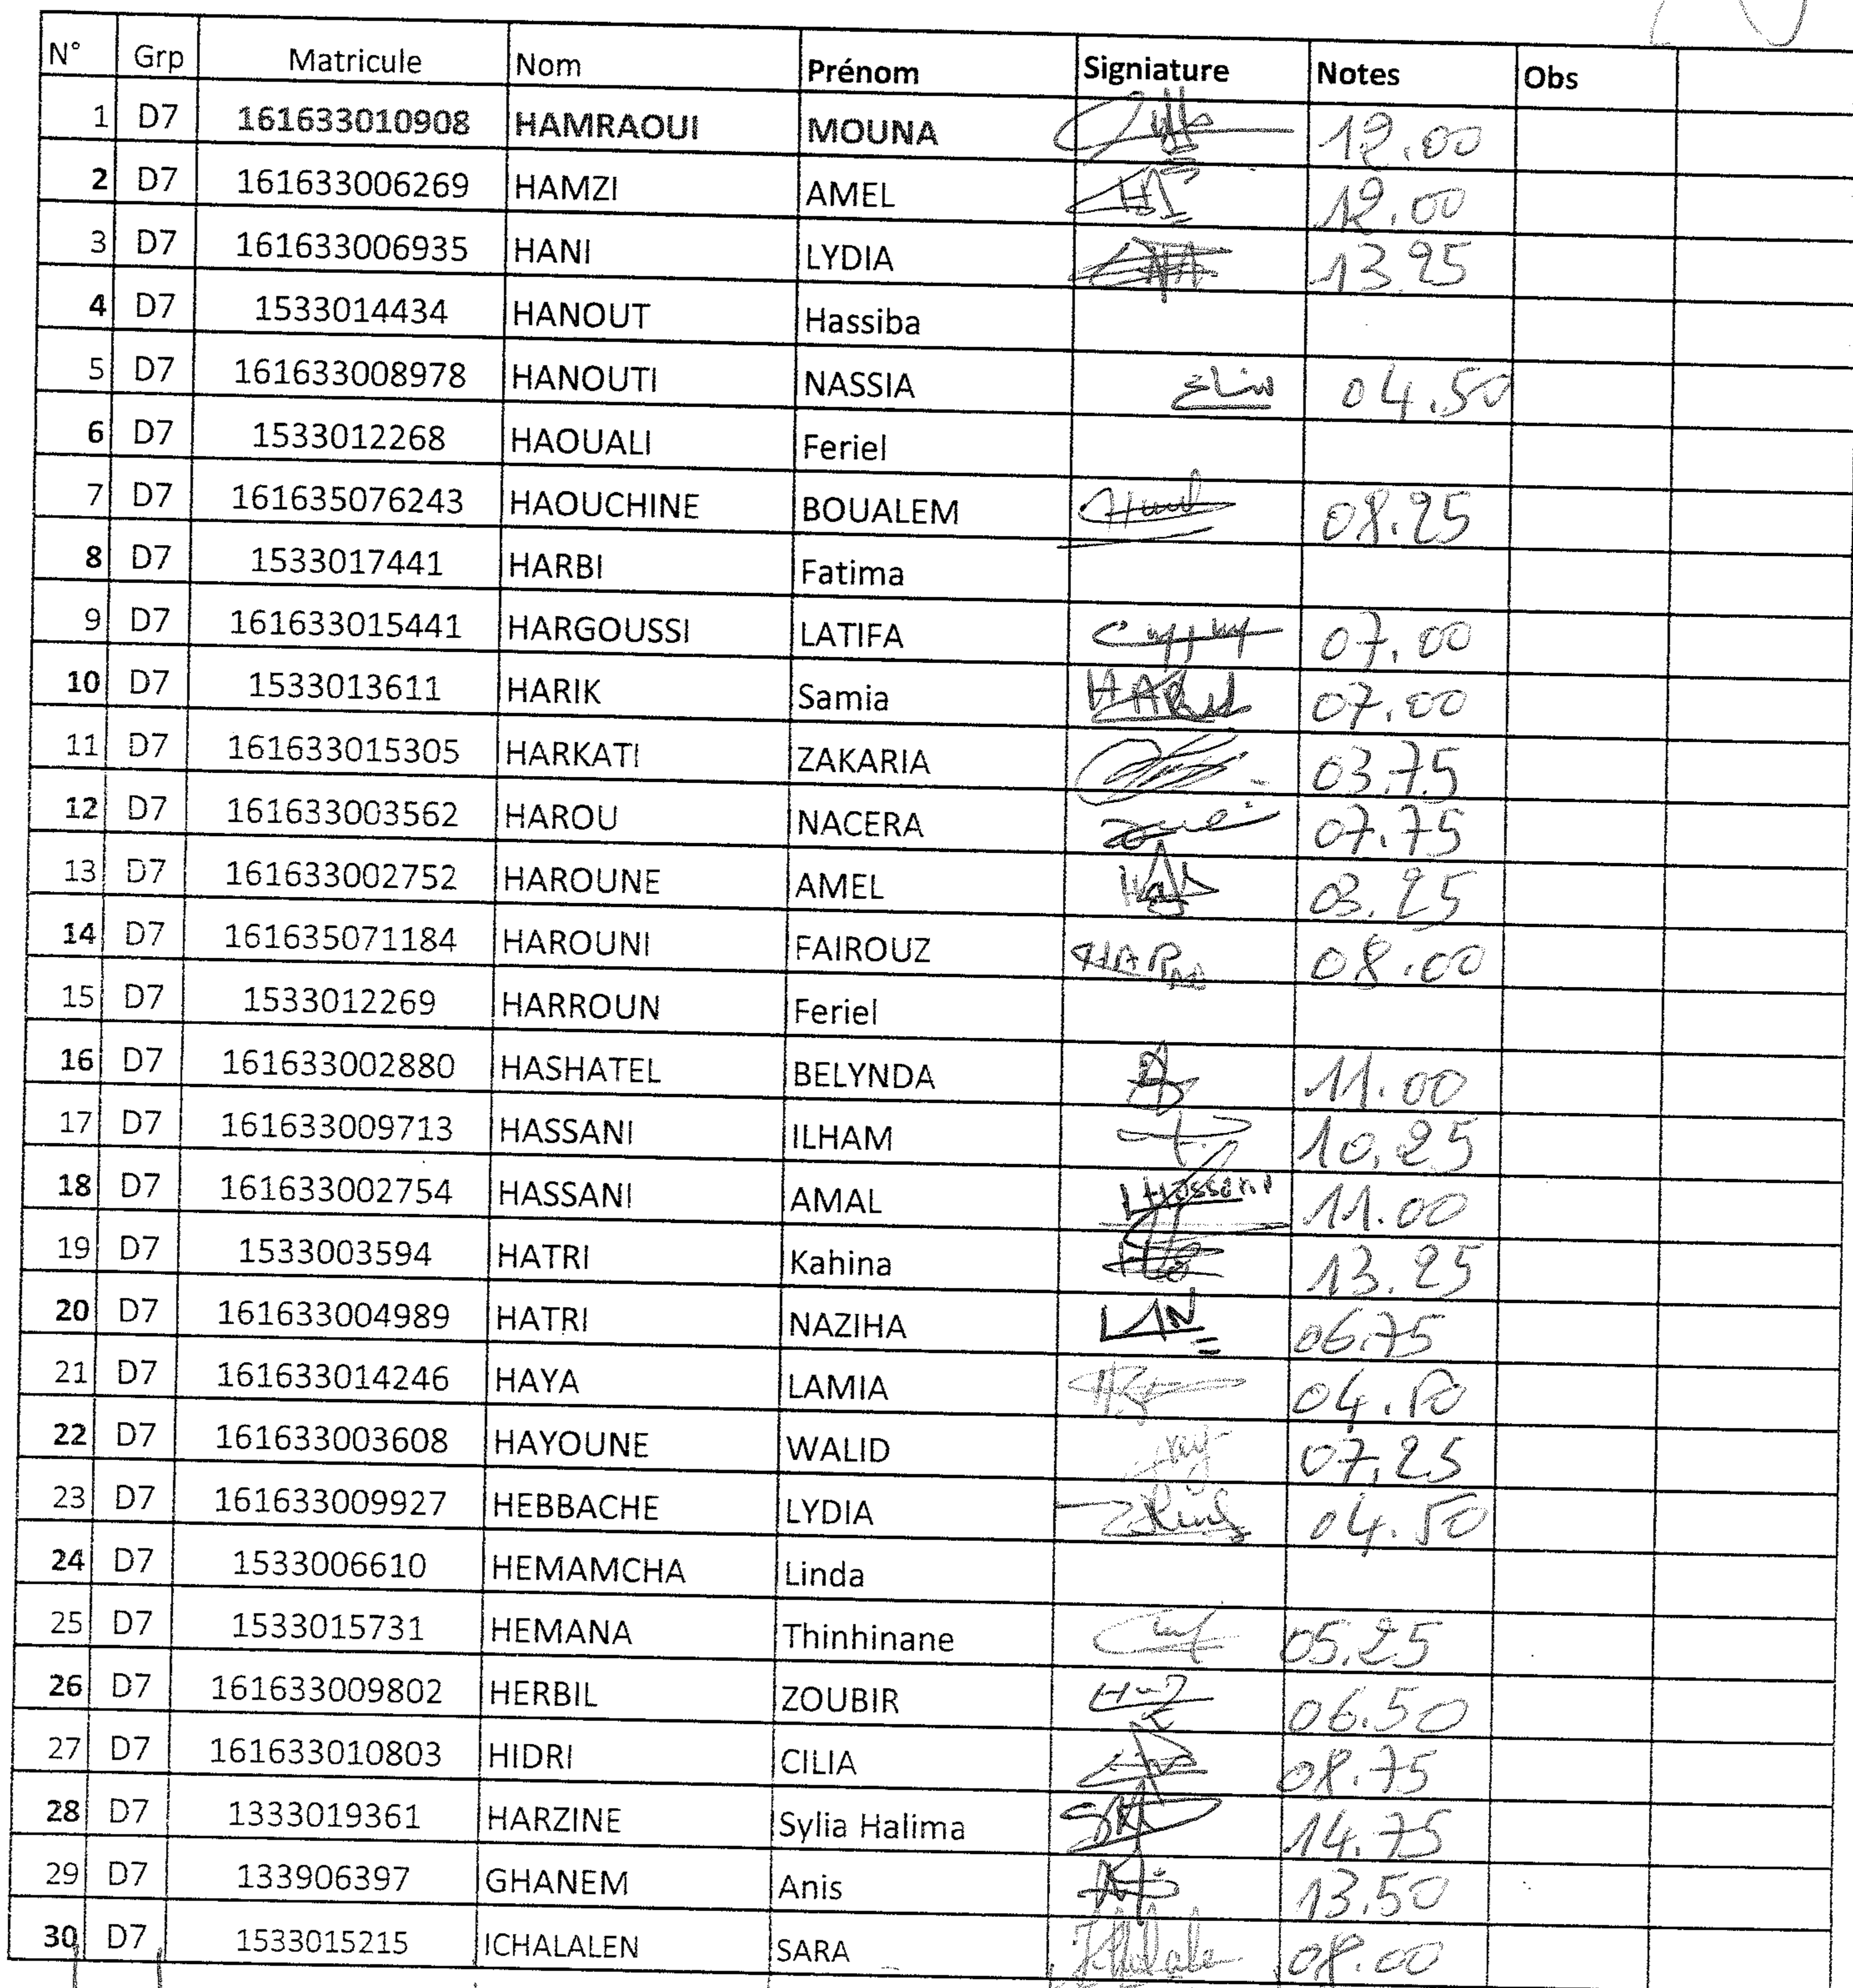 N° Grp Matricule Nom Prénom Signiature Notes Obs
1 D7 161633010908 HAMRAOUI MOUNA 12.00
2 D7 161633006269 HAMZI AMEL 12.00
3 D7 161633006935 HANI LYDIA 13.25
4 D7 1533014434 HANOUT Hassiba
5 D7 161633008978 HANOUTI NASSIA 04.50
6 D7 1533012268 HAOUALI Feriel
7 D7 161635076243 HAOUCHINE BOUALEM 08.25
8 D7 1533017441 HARBI Fatima
9 D7 161633015441 HARGOUSSI LATIFA 07.00
10 D7 1533013611 HARIK Samia 07.00
11 D7 161633015305 HARKATI ZAKARIA 03.75
12 D7 161633003562 HAROU NACERA 07.75
13 D7 161633002752 HAROUNE AMEL 03.25
14 D7 161635071184 HAROUNI FAIROUZ 08.00
15 D7 1533012269 HARROUN Feriel
16 D7 161633002880 HASHATEL BELYNDA 11.00
17 D7 161633009713 HASSANI ILHAM 10.25
18 D7 161633002754 HASSANI AMAL Hassani 11.00
19 D7 1533003594 HATRI Kahina 13.25
20 D7 161633004989 HATRI NAZIHA 06.75
21 D7 161633014246 HAYA LAMIA 04.50
22 D7 161633003608 HAYOUNE WALID 07.25
23 D7 161633009927 HEBBACHE LYDIA 04.50
24 D7 1533006610 HEMAMCHA Linda
25 D7 1533015731 HEMANA Thinhinane 05.25
26 D7 161633009802 HERBIL ZOUBIR 06.50
27 D7 161633010803 HIDRI CILIA 08.75
28 D7 1333019361 HARZINE Sylia Halima 14.75
29 D7 133906397 GHANEM Anis 13.50
30 D7 1533015215 ICHALALEN SARA 08.00